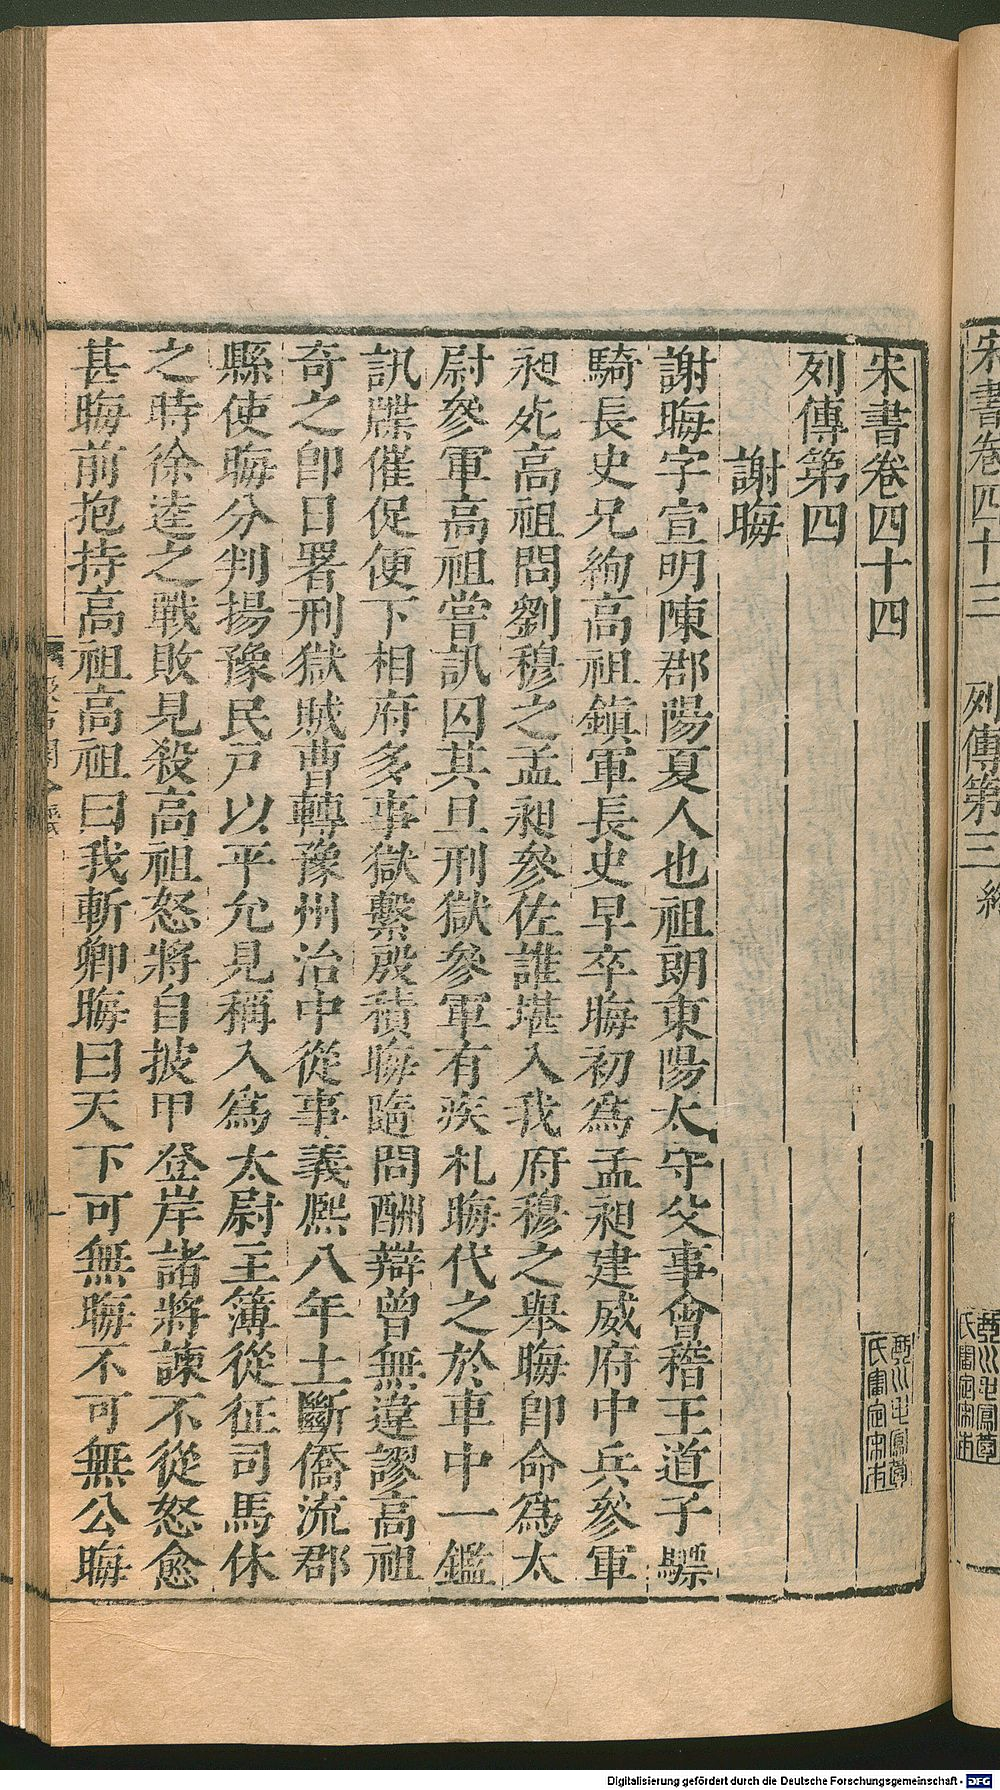 宋書卷四十四
列傳第四
謝晦
謝晦字宣明陳郡陽夏人也祖朗東陽太守父事會稽王道子驃
騎長史兄絢高祖鎮軍長史早卒晦初爲孟昶建威府中兵參軍
昶死高祖問劉穆之孟昶參佐誰堪入我府穆之舉晦卽命爲太
尉參軍高祖嘗訊囚其旦刑獄參軍有疾札晦代之於車中一鑑
訊牒催促便下相府多事獄繫殷積晦隨問酬辯曾無違謬高祖
奇之卽日署刑獄賊曹轉豫州治中從事義熙八年土斷僑流郡
縣使晦分判揚豫民戸以平允見稱入爲太尉主簿從征司馬休
之時徐逵之戰敗見殺高祖怒將自披甲登岸諸將諫不從怒愈
甚晦前抱持高祖高祖曰我斬卿晦曰天下可無晦不可無公晦
宋書卷四十三
列傳第三
Digitalisierung gefördert durch die Deutsche Forschungsgemeinschaft - DFG